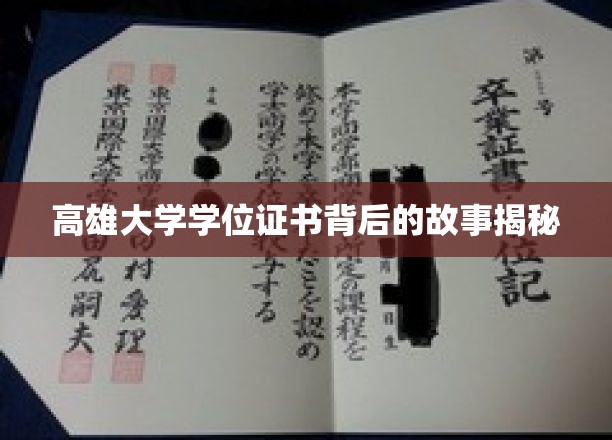 高雄大学学位证书背后的故事揭秘
第 号
卒業証書 位記
本学商学部商 所定の課程を
月 日生
修めて本学を たことを認め
学士(商学)の学位 授与する
平成
東京国際大学商学 村 愛理
東京国際大学学 田尻嗣夫